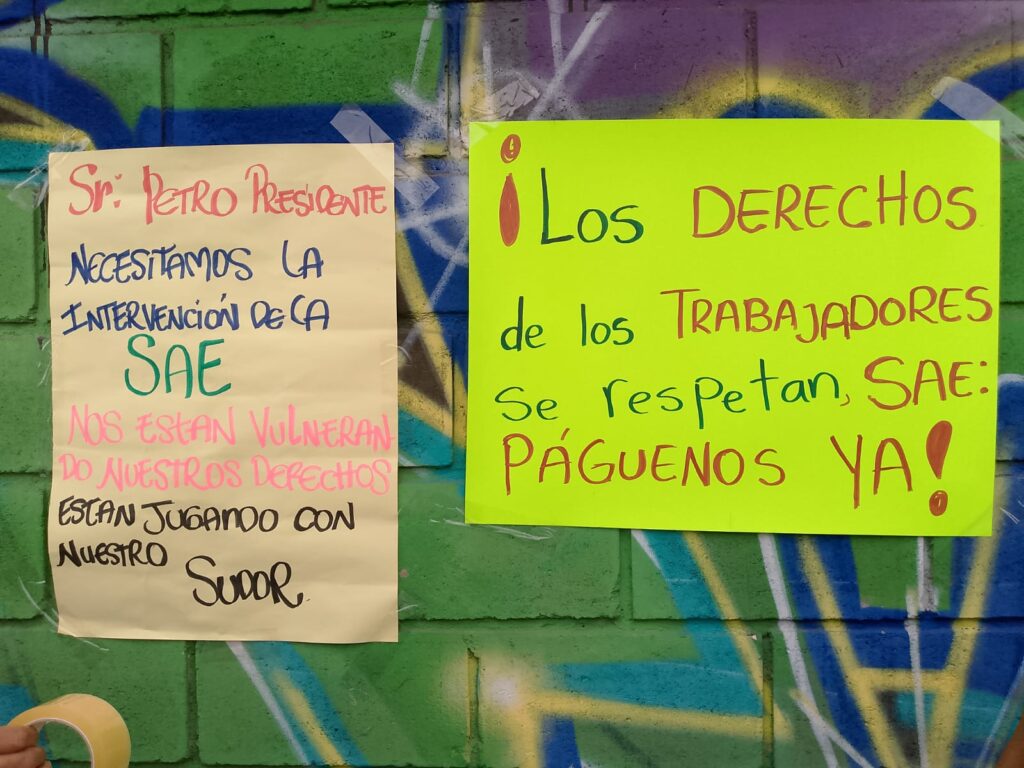 Sr: PETRO PRESIDENTE
NECESITAMOS LA
INTERVENCIÓN DE LA
SAE
NOS ESTAN VULNERAN
DO NUESTROS DERECHOS
ESTAN JUGANDO CON
NUESTRO
SUDOR.
¡LOS DERECHOS
de los TRABAJADORES
se respetan, SAE:
PÁGUENOS YA!